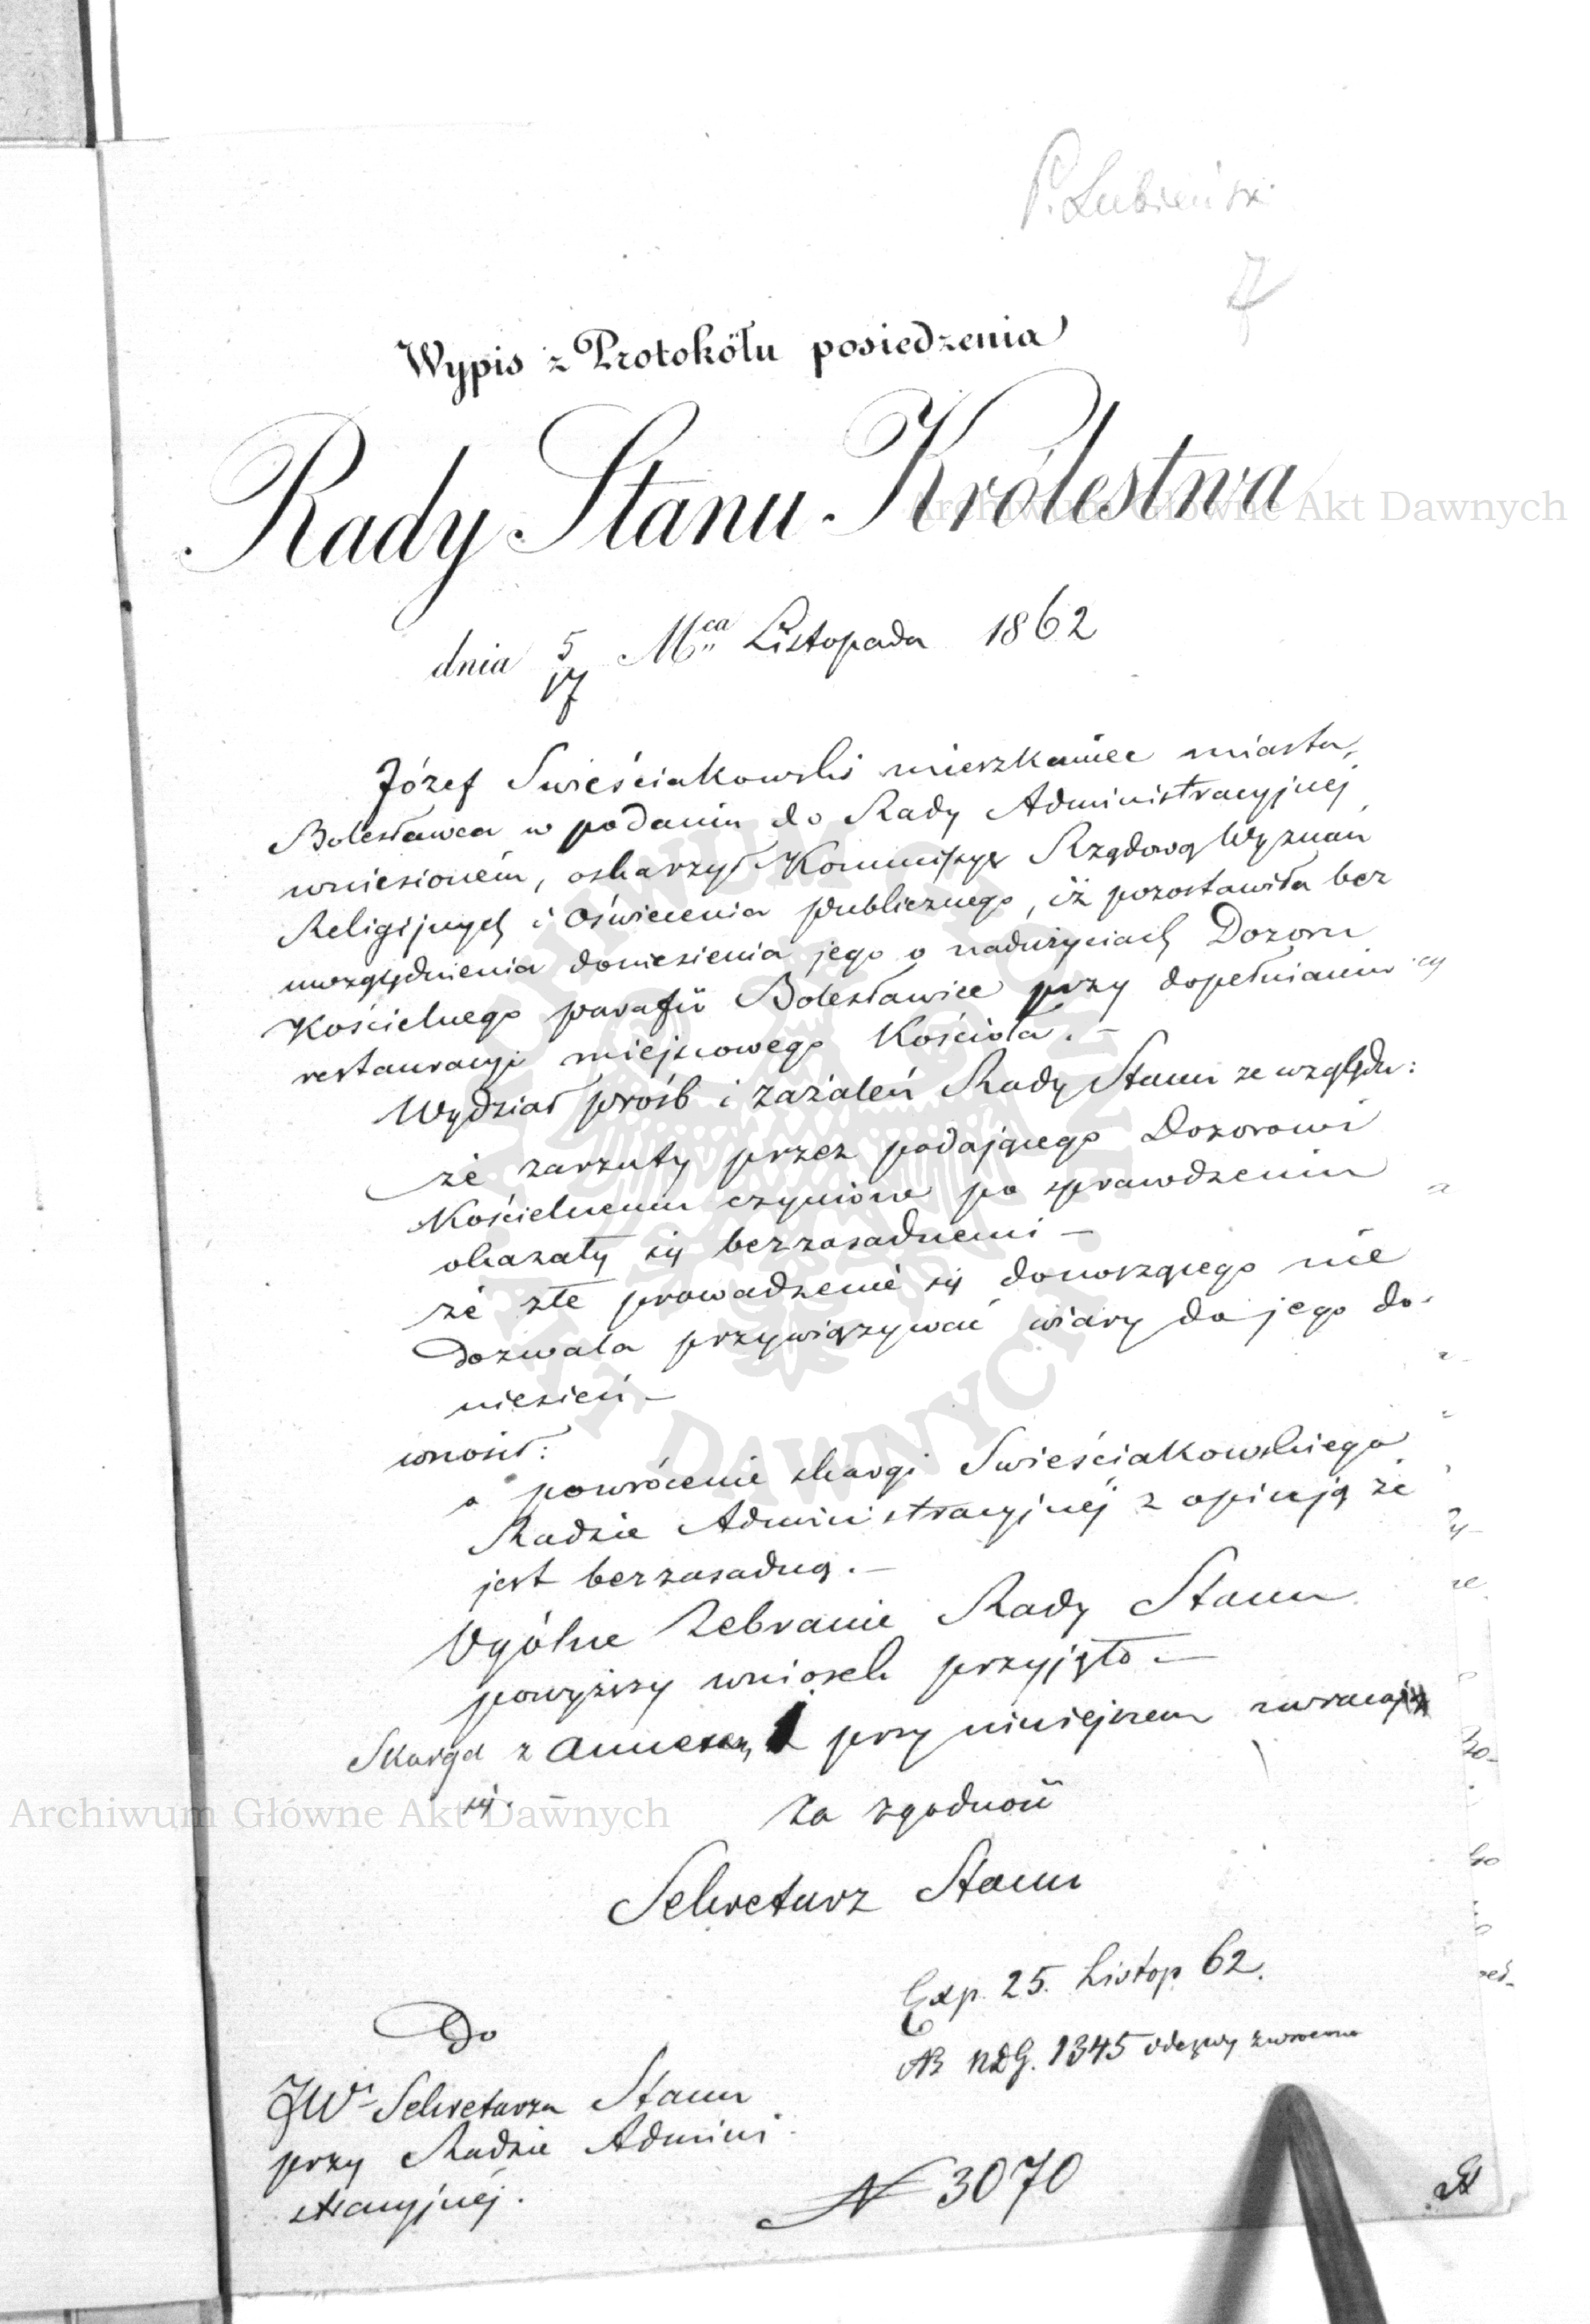 P. Lubieński
7
Wypis z Protokółu posiedzenia
Rady Stanu Królestwa
dnia 5/17 Mca Listopada 1862
Józef Swieściakowski mieszkaniec miasta
Bolesławca w podaniu do Rady Administracyjnej
wniesioném, oskarzył Kommissyę Rządową Wyznań
Religijnych i Oświecenia publicznego, iż pozostawiła bez
uwzględnienia doniesienia jego o nadużyciach Dozoru
Kościelnego parafii Bolesławice przy dopełnianiu
restauracyi miejscowego Kościoła. —
Wydział prośb i zażaleń Rady Stanu ze względu:
że zarzuty przez podającego Dozorowi
Kościelnemu czynione po sprawdzeniu
okazały się bezzasadnemi —
że złe prowadzenie się donoszącego nie
dozwala przywiązywać wiary do jego do-
niesień —
wnosił:
o powrócenie skargi Swieściakowskiego
Radzie Administracyjnej z opinią że
jest bezzasadną. —
Ogólne Zebranie Rady Stanu
powyższy wniosek przyjęło —
Skarga z annexem przy niniejszem zwracają
się. —
Za zgodność
Sekretarz Stanu
Exp. 25. Listop 62.
NB NDG. 1345 odezwy zwrócono
Do
JW Sekretarza Stanu
przy Radzie Admini
stracyjnej.
N 3070
Archiwum Główne Akt Dawnych
Archiwum Główne Akt Dawnych
ARCHIWUM GŁÓWNE AKT DAWNYCH